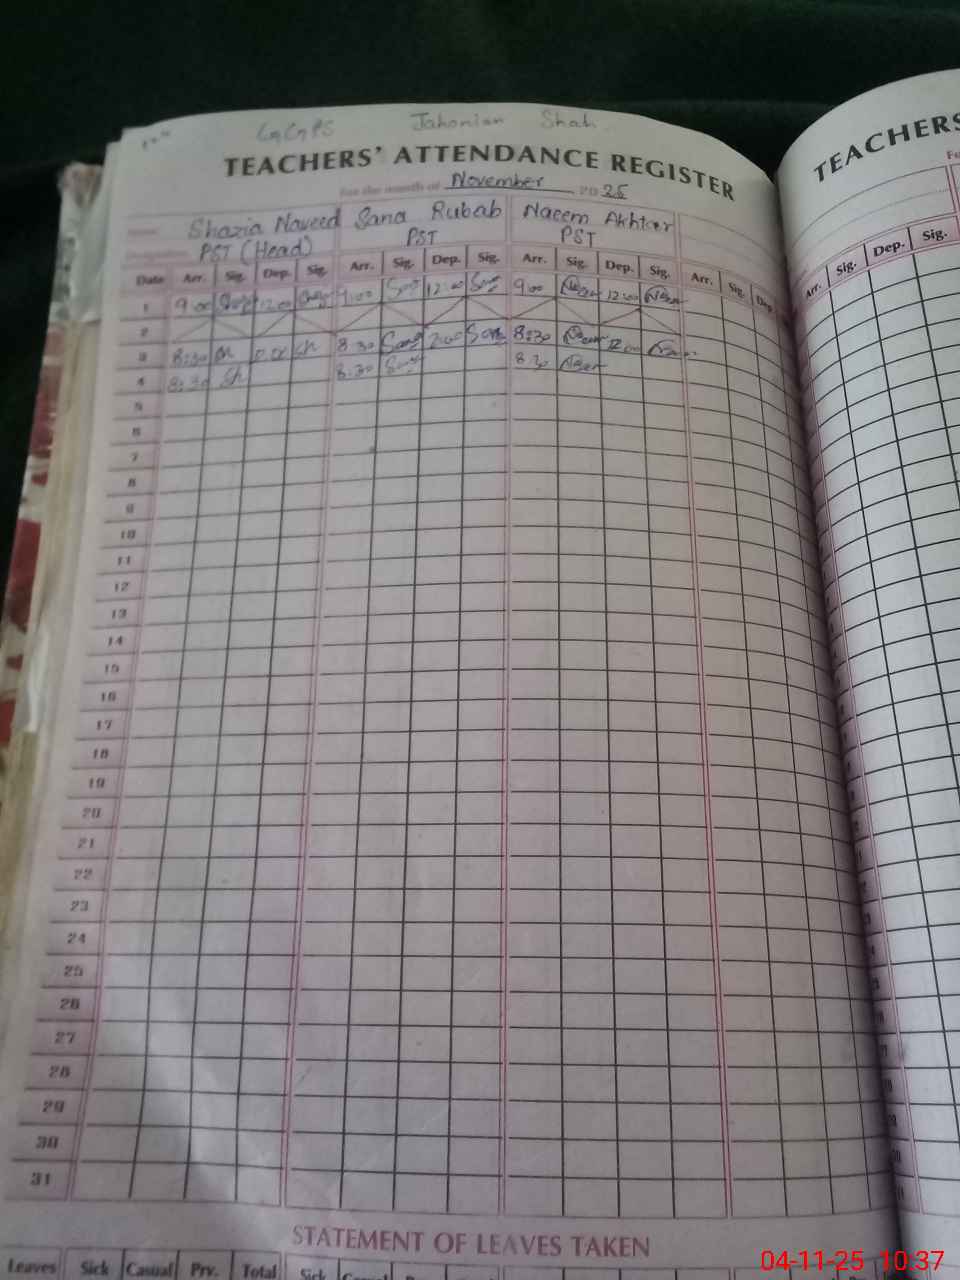 GGPS Jahanian Shah
TEACHERS' ATTENDANCE REGISTER
For the month of November 2025
Shazia Naveed Sana Rubab Naeem Akhtar
PST (Head) PST PST
Date Arr. Sig. Dep. Sig. Arr. Sig. Dep. Sig. Arr. Sig. Dep. Sig. Arr. Sig. Dep.
1 9:00 12:00 9:00 12:00 9:00 12:00
2
3 8:30 Sh Sh 8:30 2:00 8:30 12:00
4 8:30 Sh 8:30 8:30
5
6
7
8
9
10
11
12
13
14
15
16
17
18
19
20
21
22
23
24
25
26
27
28
29
30
31
STATEMENT OF LEAVES TAKEN
Leaves Sick Casual Prv. Total Sick
TEACHERS
Arr. Sig. Dep. Sig.
04-11-25 10:37